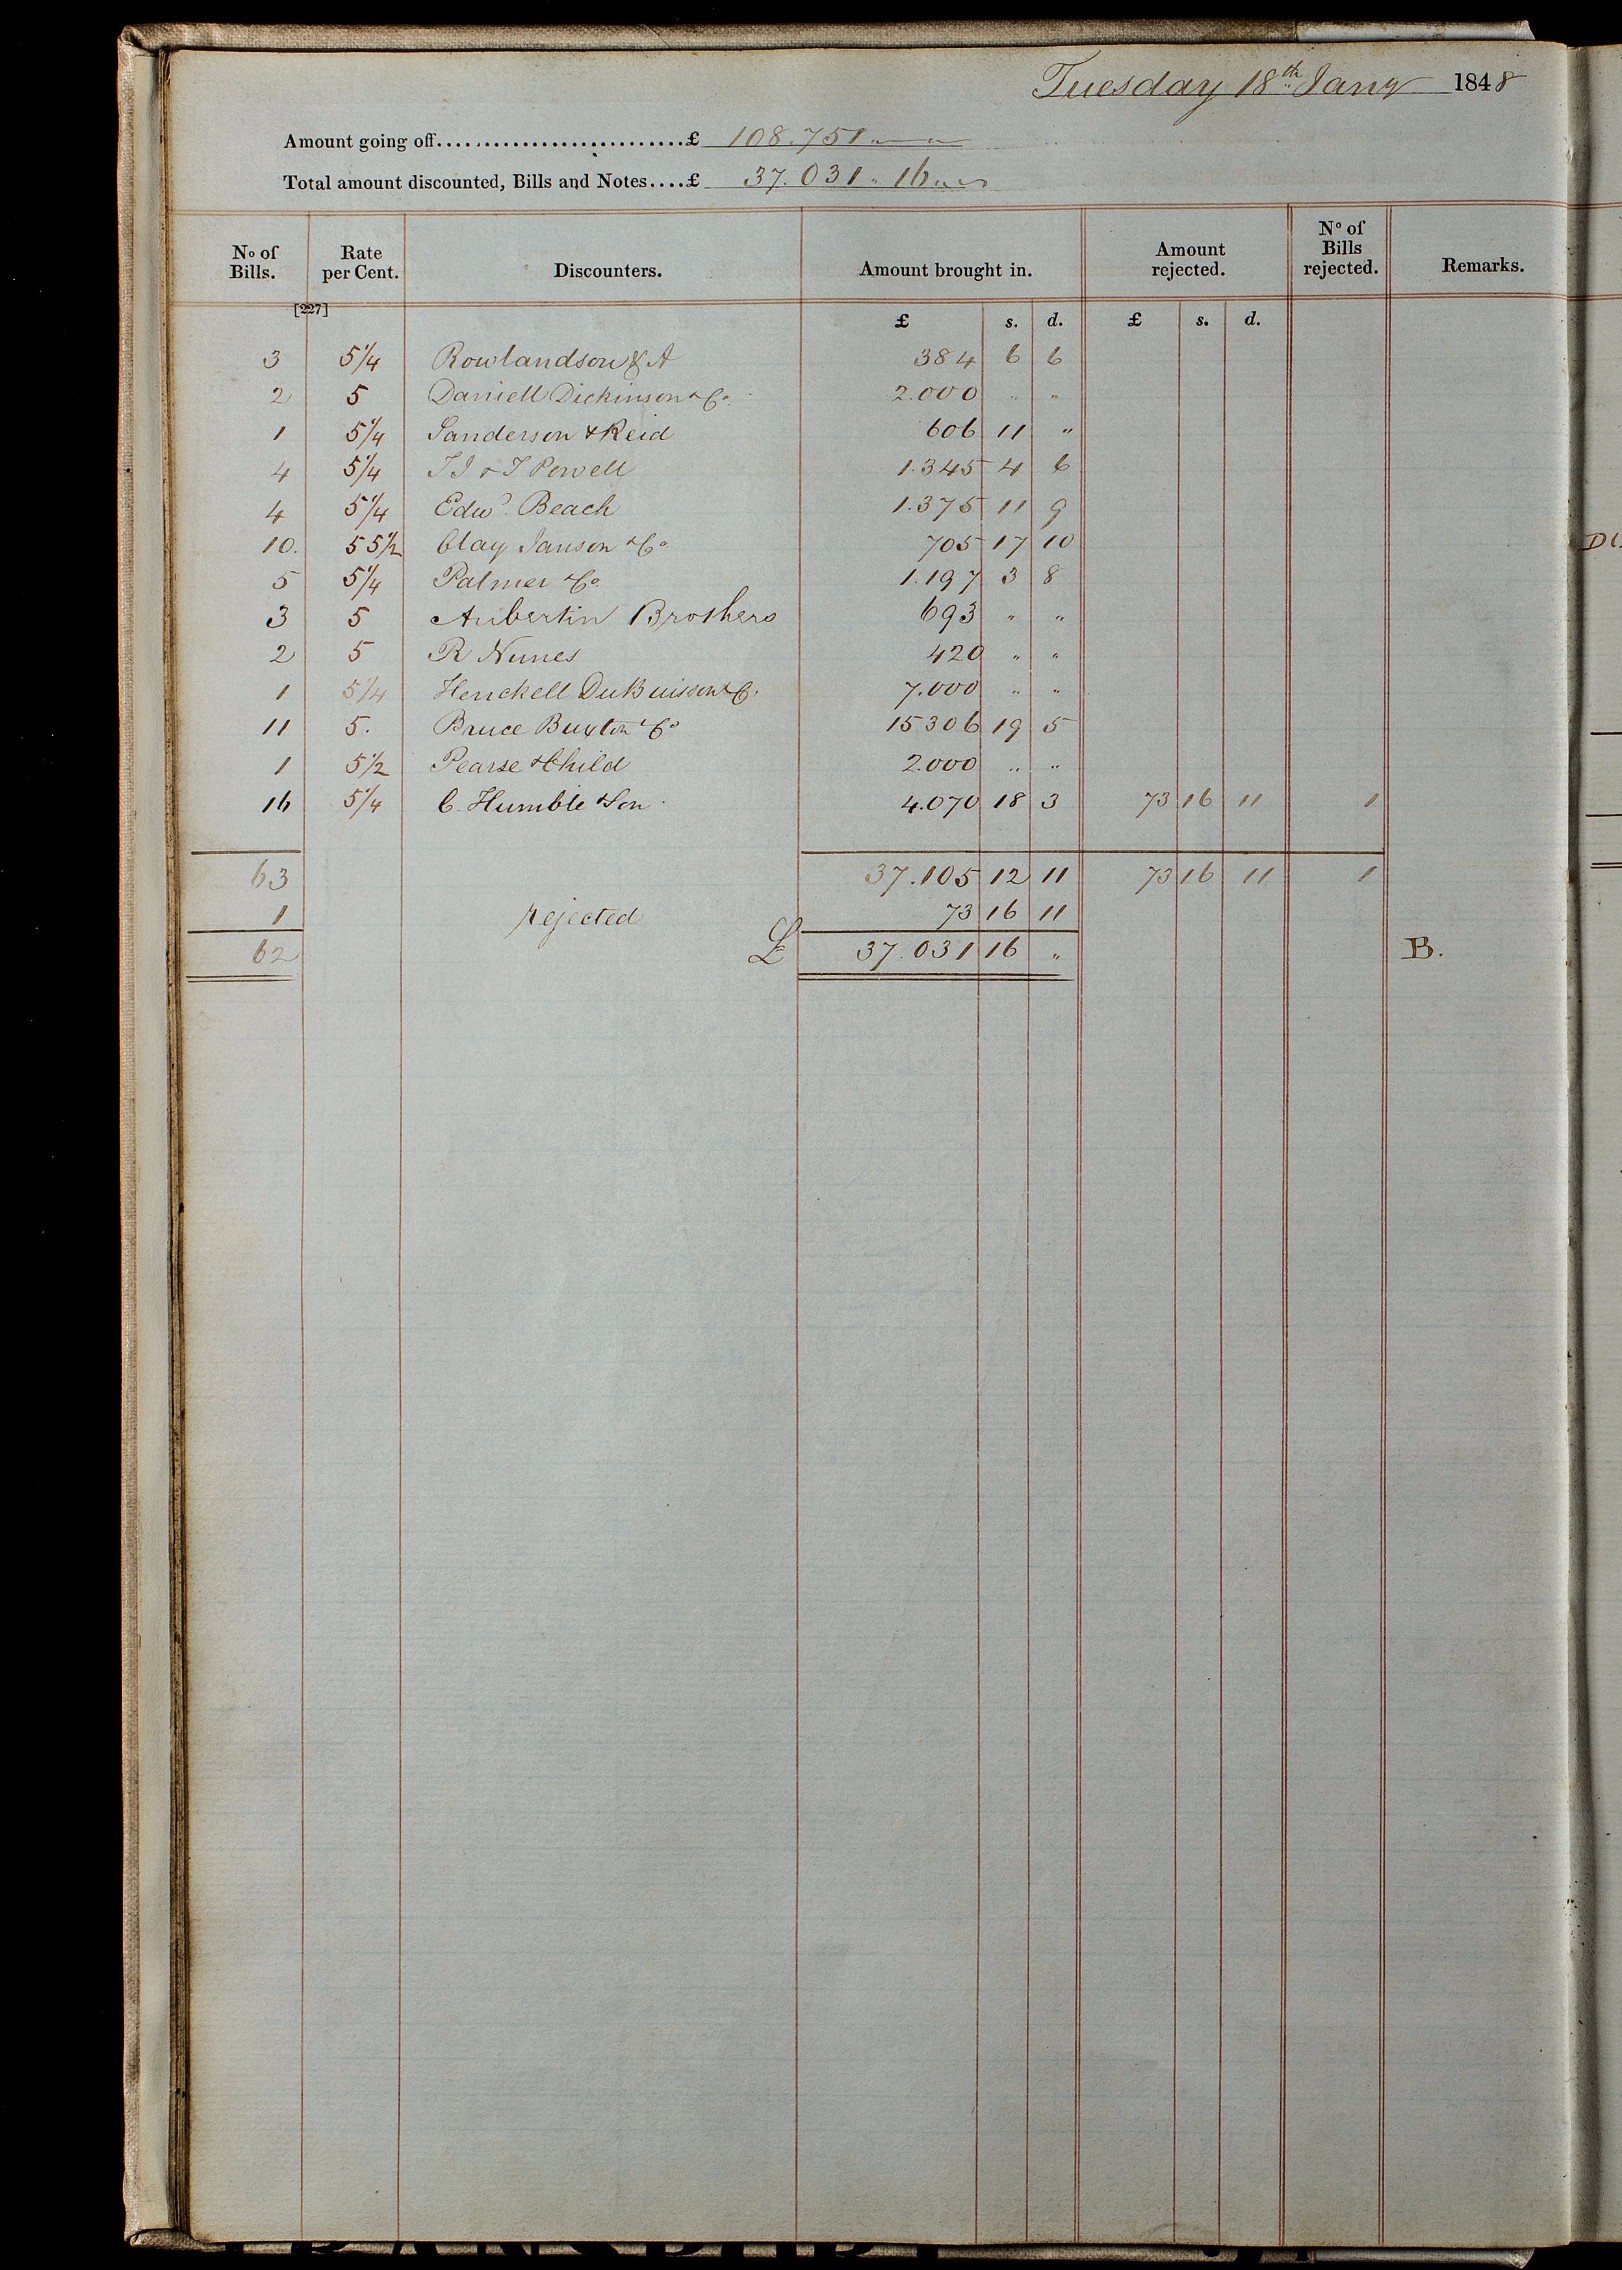 Tuesday 18th Jany 1848
Amount going off..........................£ 108.751 " "
Total amount discounted, Bills and Notes....£ 37.031 " 16 " "
No of Bills. Rate per Cent. Discounters. Amount brought in. Amount rejected. No of Bills rejected. Remarks.
[227]
£ s. d. £ s. d.
3 5 1/4 Rowlandson & A 384 6 6
2 5 Daniell Dickinson & Co 2.000 " "
1 5 1/4 Sanderson & Reid 606 11 "
4 5 1/4 T J & T Powell 1.345 4 6
4 5 1/4 Edwd. Beach 1.375 11 9
10. 5 5 1/2 Clay Janson & Co 705 17 10
5 5 1/4 Palmer & Co 1.197 3 8
3 5 Aubertin Brothers 693 " "
2 5 R Nunes 420 " "
1 5 1/4 Henckell DuBuisson & C. 7.000 " "
11 5. Bruce Buxton & Co 15306 19 5
1 5 1/2 Pearse & Child 2.000 " "
16 5 1/4 C. Humble & Son 4.070 18 3 73 16 11 1
63 37.105 12 11 73 16 11 1
1 rejected 73 16 11
62 £ 37.031 16 " B.